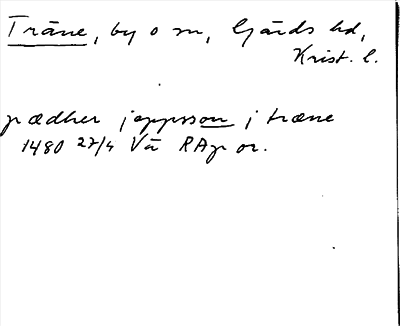 Träne, by o sn, Gärds hd,
Krist. l.
pædher jeppsson j træne
1480 27/4 Vä RAp or.